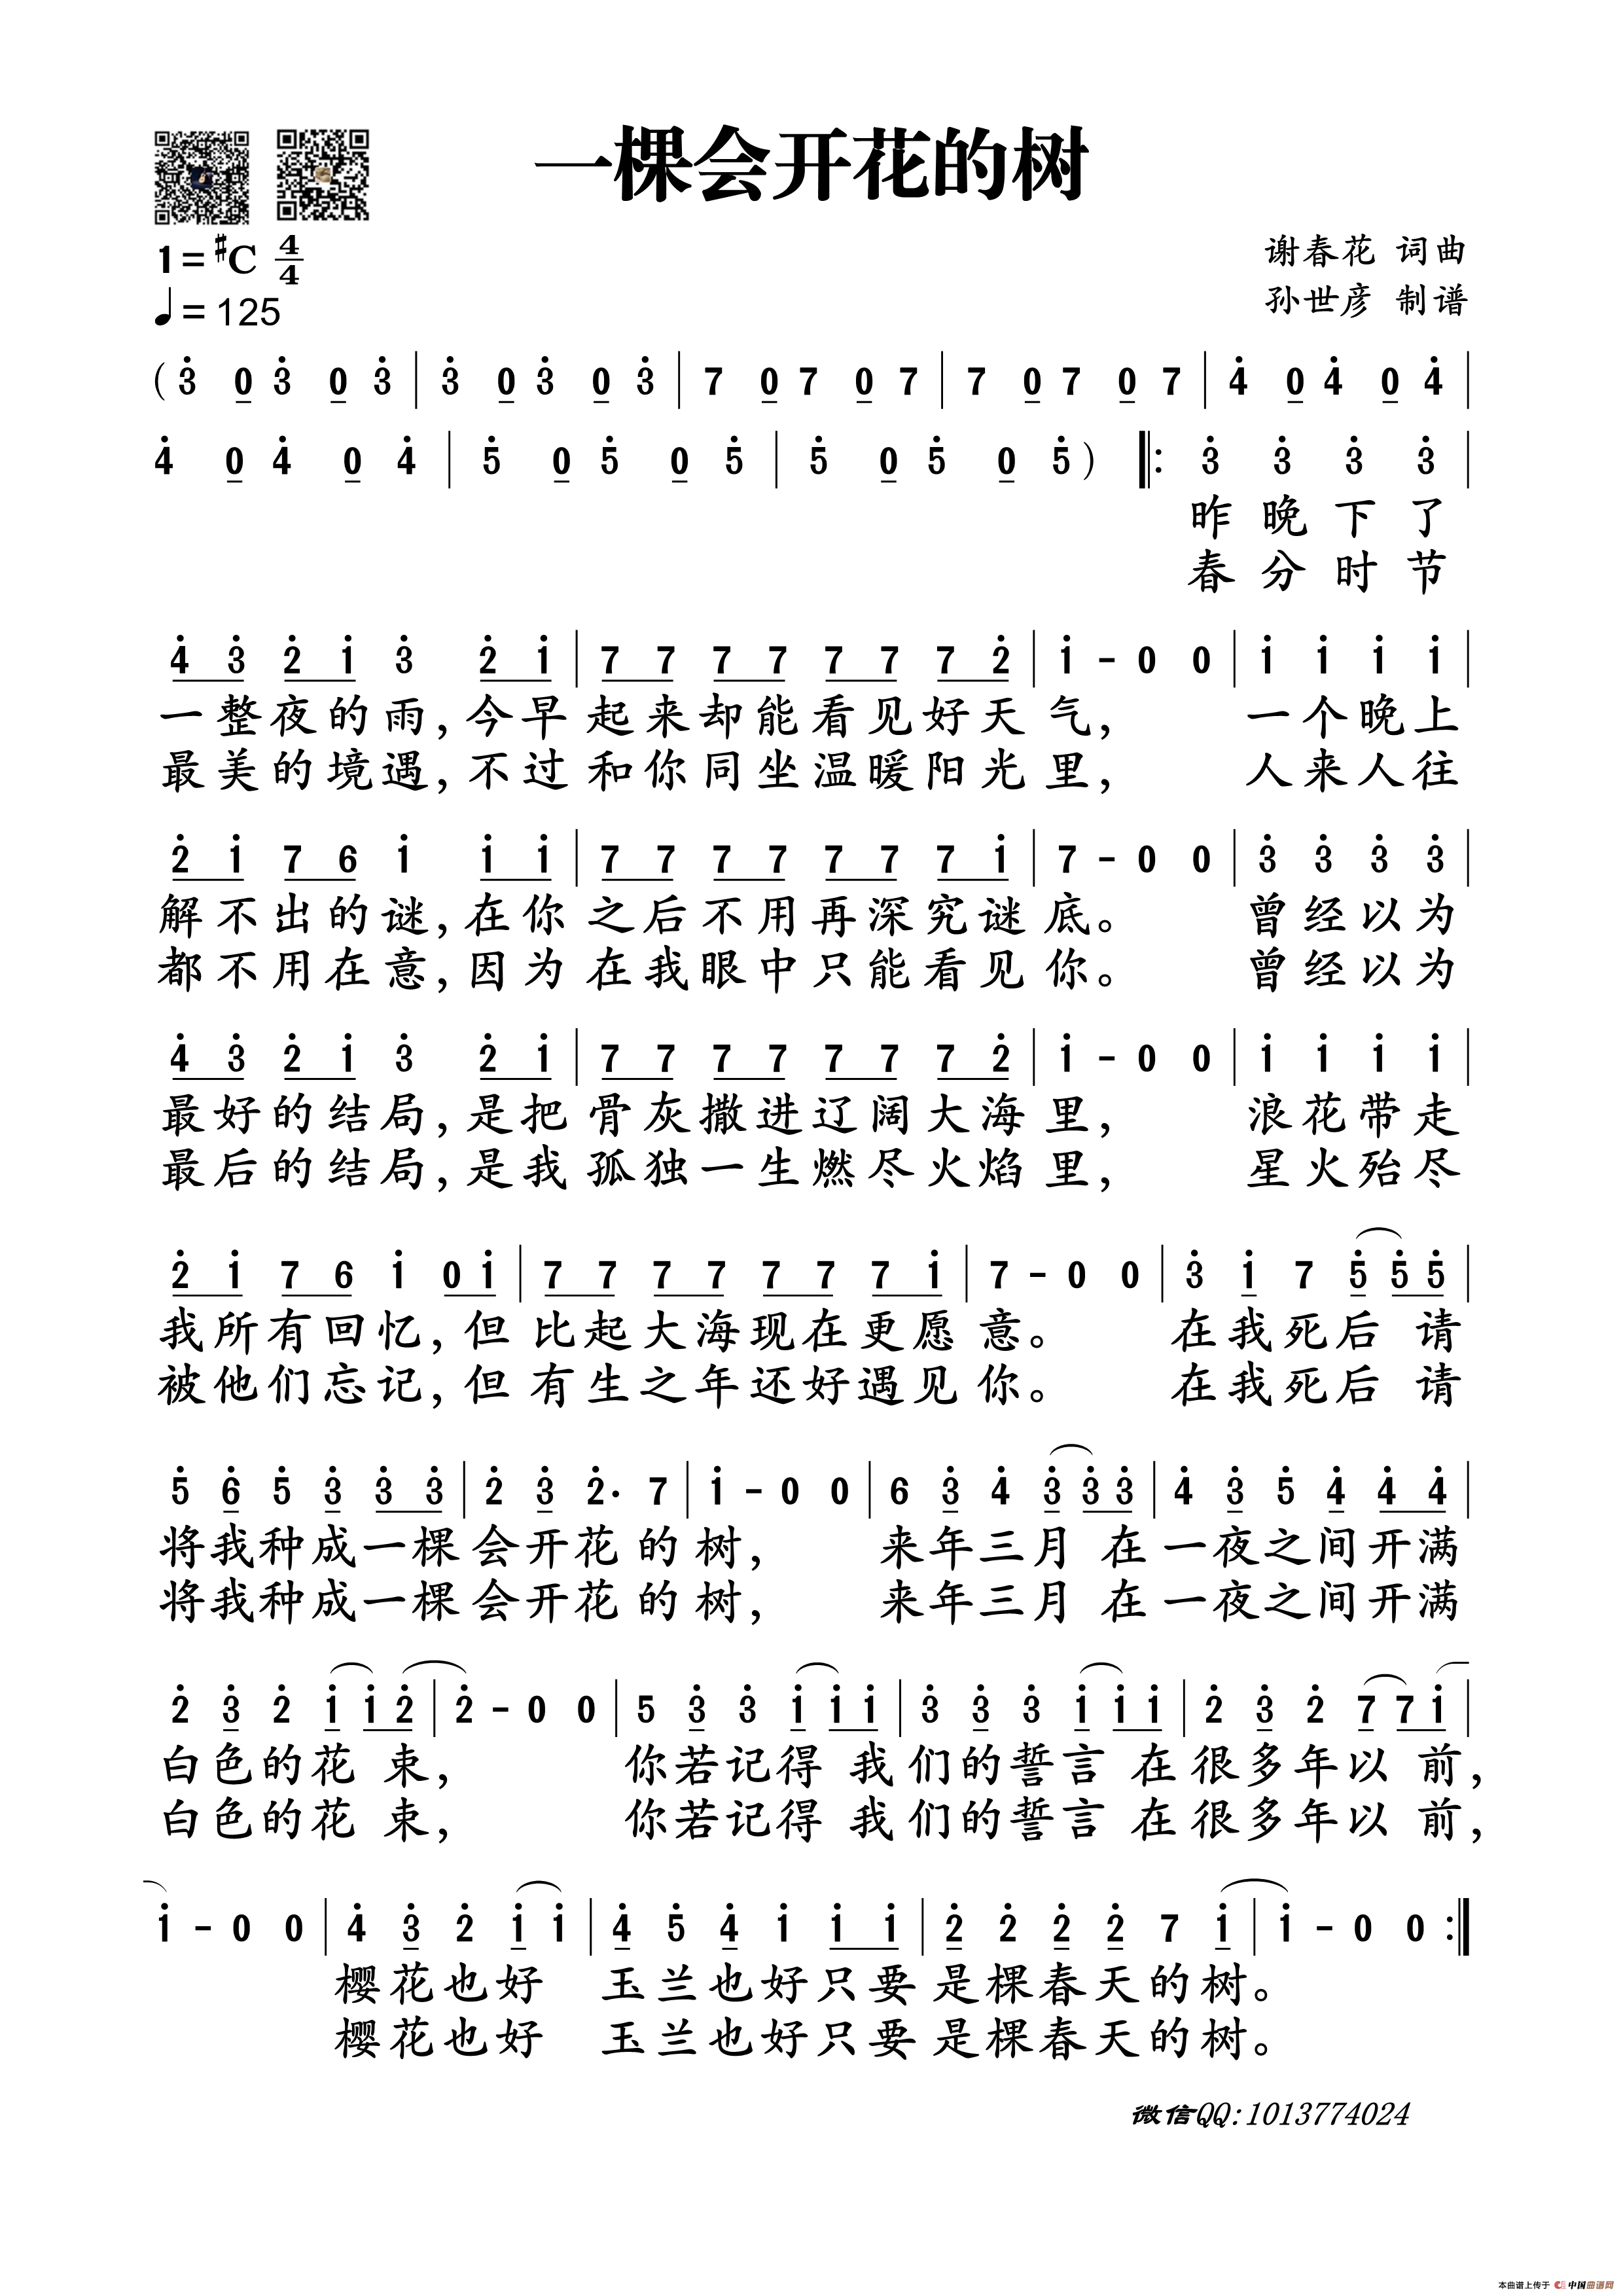 一棵会开花的树
1=♯C 4/4
♩=125
谢春花 词曲
孙世彦 制谱
(3̇ 0 3̇ 0 3̇ | 3̇ 0 3̇ 0 3̇ | 7 0 7 0 7 | 7 0 7 0 7 | 4̇ 0 4̇ 0 4̇ |
4̇ 0 4̇ 0 4̇ | 5̇ 0 5̇ 0 5̇ | 5̇ 0 5̇ 0 5̇) ‖: 3̇ 3̇ 3̇ 3̇ |
昨晚下了
春分时节
4̇ 3̇ 2̇ 1̇ 3̇ 2̇ 1̇ | 7 7 7 7 7 7 7 2̇ | 1̇ - 0 0 | 1̇ 1̇ 1̇ 1̇ |
一整夜的雨,今早起来却能看见好天气, 一个晚上
最美的境遇,不过和你同坐温暖阳光里, 人来人往
2̇ 1̇ 7 6 1̇ 1̇ 1̇ | 7 7 7 7 7 7 7 1̇ | 7 - 0 0 | 3̇ 3̇ 3̇ 3̇ |
解不出的谜,在你之后不用再深究谜底。 曾经以为
都不用在意,因为在我眼中只能看见你。 曾经以为
4̇ 3̇ 2̇ 1̇ 3̇ 2̇ 1̇ | 7 7 7 7 7 7 7 2̇ | 1̇ - 0 0 | 1̇ 1̇ 1̇ 1̇ |
最好的结局,是把骨灰撒进辽阔大海里, 浪花带走
最后的结局,是我孤独一生燃尽火焰里, 星火殆尽
2̇ 1̇ 7 6 1̇ 0 1̇ | 7 7 7 7 7 7 7 1̇ | 7 - 0 0 | 3̇ 1̇ 7 5̇ 5̇ 5̇ |
我所有回忆,但比起大海现在更愿意。 在我死后 请
被他们忘记,但有生之年还好遇见你。 在我死后 请
5̇ 6̇ 5̇ 3̇ 3̇ 3̇ | 2̇ 3̇ 2̇· 7 | 1̇ - 0 0 | 6 3̇ 4̇ 3̇ 3̇ 3̇ | 4̇ 3̇ 5̇ 4̇ 4̇ 4̇ |
将我种成一棵会开花的树, 来年三月 在一夜之间开满
将我种成一棵会开花的树, 来年三月 在一夜之间开满
2̇ 3̇ 2̇ 1̇ 1̇ 2̇ | 2̇ - 0 0 | 5 3̇ 3̇ 1̇ 1̇ 1̇ | 3̇ 3̇ 3̇ 1̇ 1̇ 1̇ | 2̇ 3̇ 2̇ 7 7 1̇ |
白色的花 束, 你若记得 我们的誓言 在很多年以 前,
白色的花 束, 你若记得 我们的誓言 在很多年以 前,
1̇ - 0 0 | 4̇ 3̇ 2̇ 1̇ 1̇ | 4̇ 5̇ 4̇ 1̇ 1̇ 1̇ | 2̇ 2̇ 2̇ 2̇ 7 1̇ | 1̇ - 0 0 :‖
樱花也好 玉兰也好只要是棵春天的树。
樱花也好 玉兰也好只要是棵春天的树。
微信QQ:1013774024
本曲谱上传于 中国曲谱网